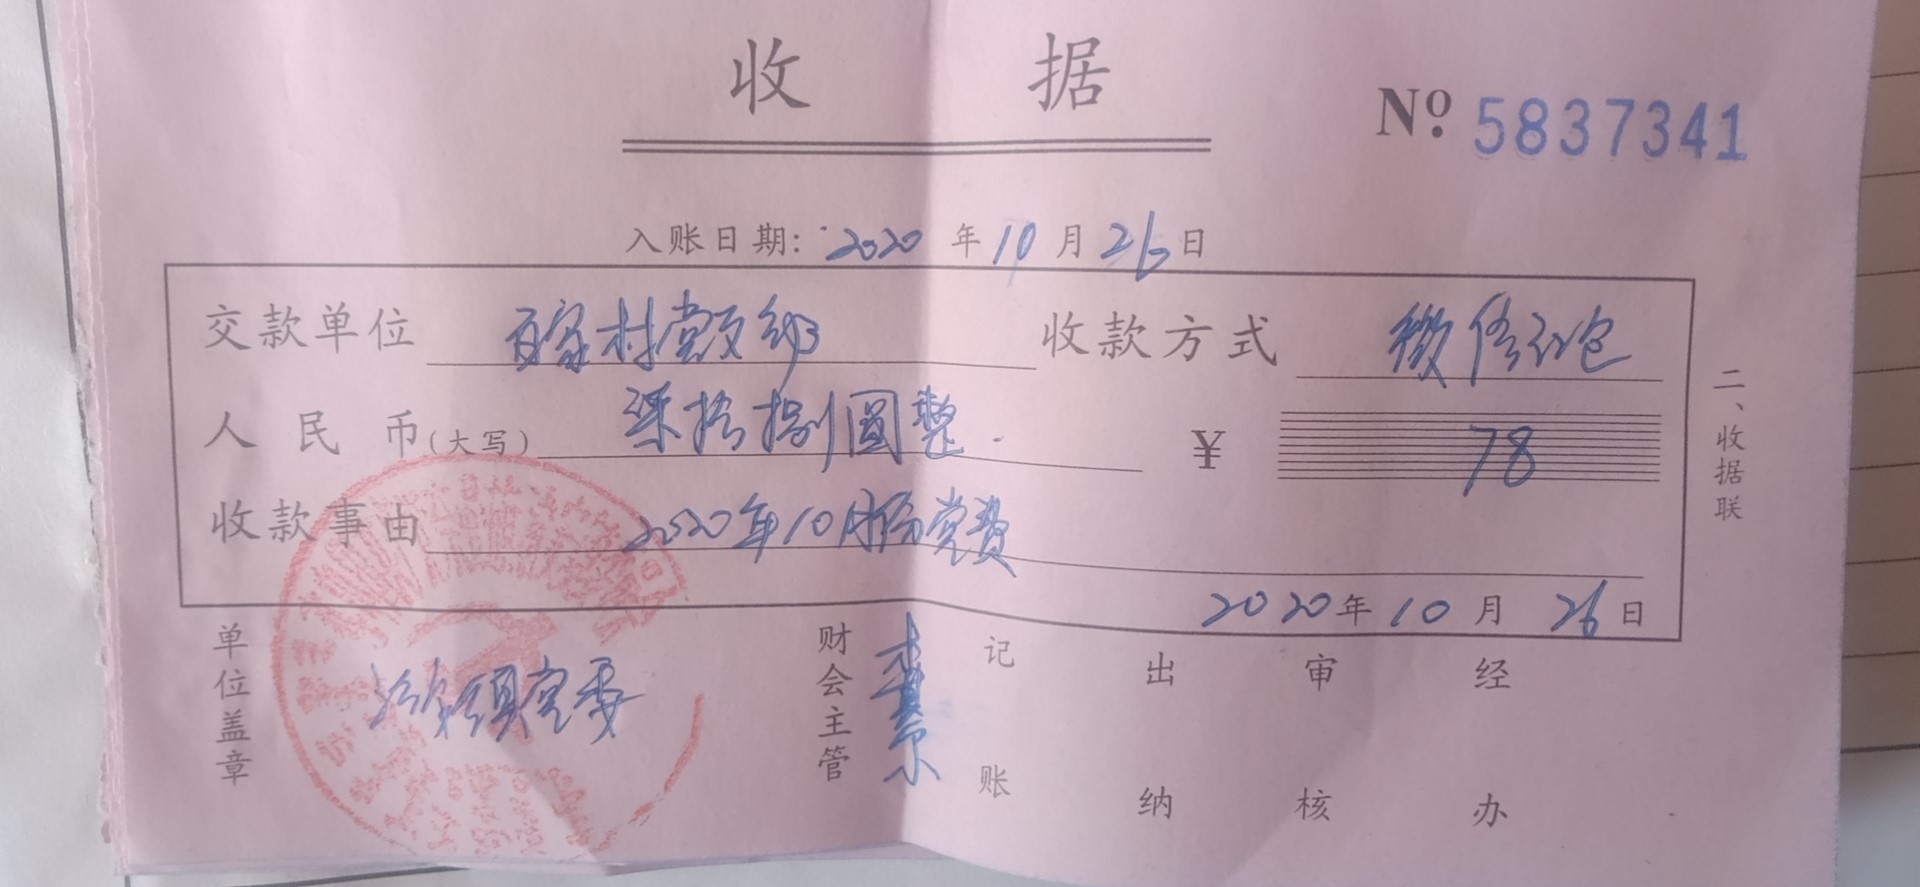 收 据
№ 5837341
入账日期: 2020 年 10 月 26 日
交款单位 百家村党支部 收款方式 微信红包
人民币(大写) 柒拾捌圆整 ¥ 78
收款事由 2020年10月份党费
2020年 10 月 26 日
单位盖章 镇党委 财会主管 记账 出纳 审核 经办
二、收据联